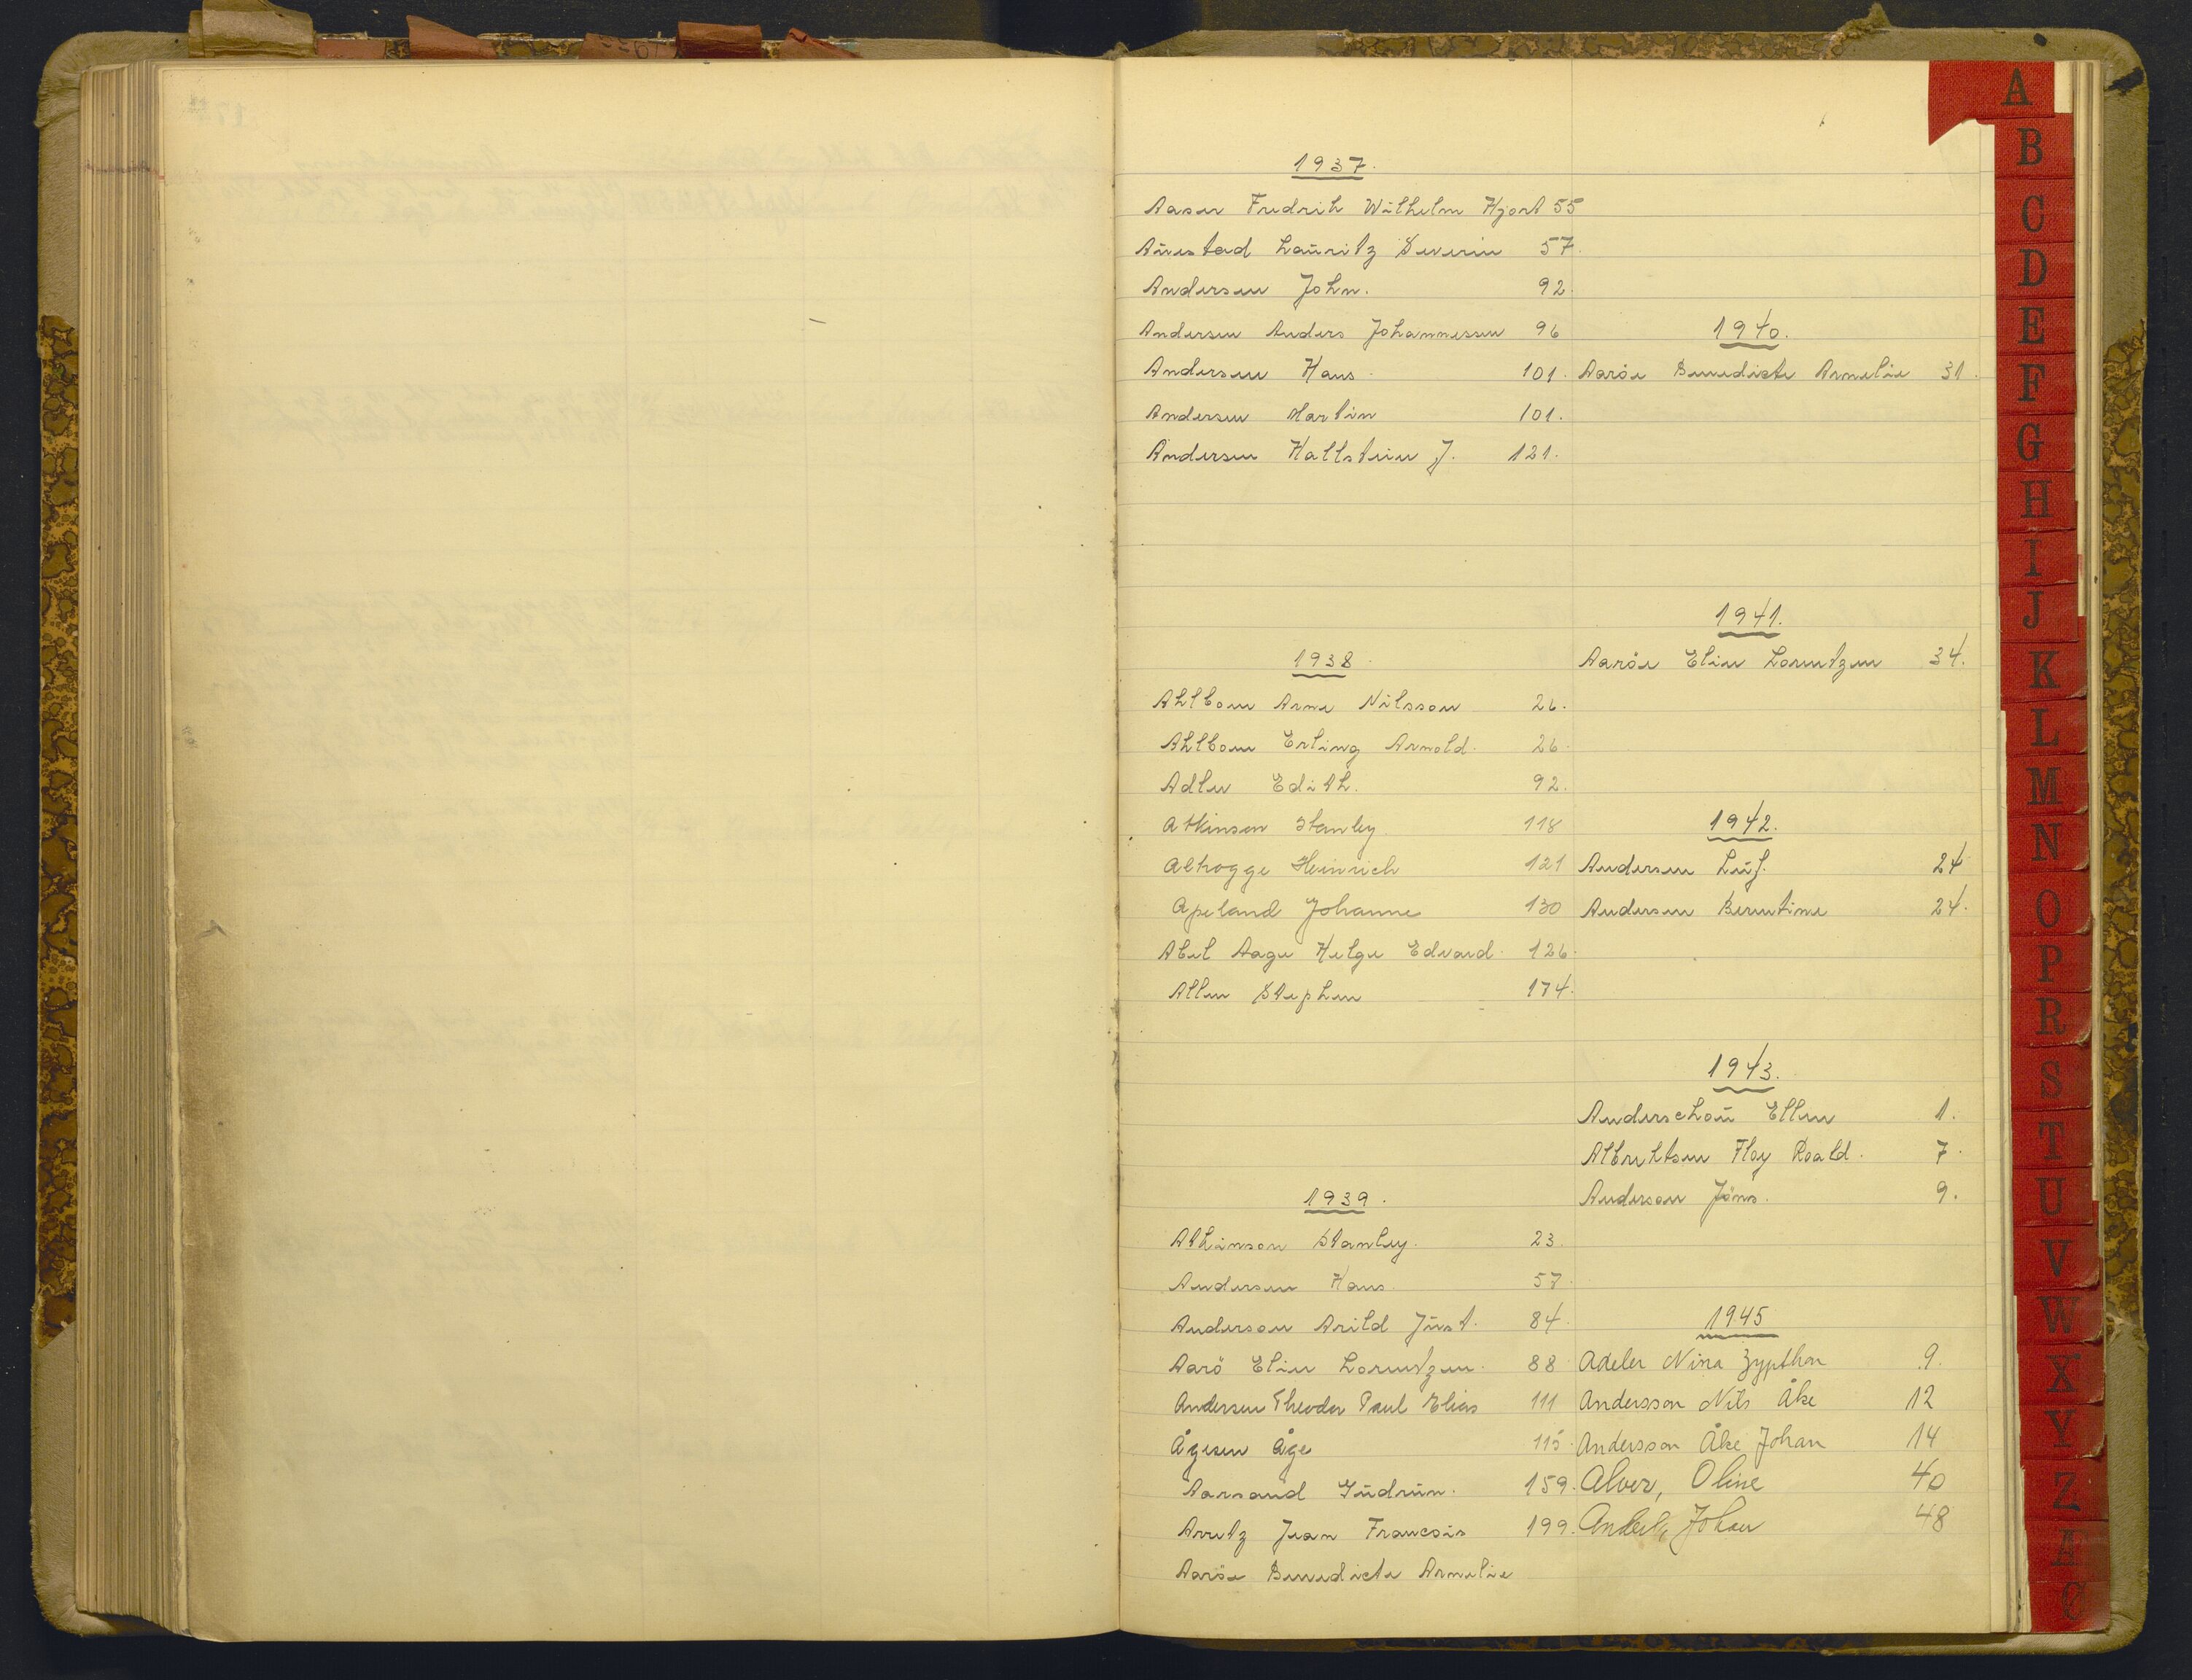 1937.
Aaser Fredrik Wilhelm Hjort 55
Aurstad Lauritz Severin 57.
Andersen John. 92.
Andersen Anders Johannessen 96
Andersen Hans. 101.
Andersen Martin 101.
Andersen Hallstein J. 121.
1938.
Ahlbom Arne Nilsson 26.
Ahlbom Erling Arnold. 26.
Adler Edith. 92.
Atkinson Stanley. 118
Althogge Heinrich 121
Apeland Johanne 130
Abel Aage Helge Edvard. 126.
Allen Stephen 174.
1939.
Atkinson Stanley. 23.
Andersen Hans. 57.
Anderson Arild Just. 84.
Aarö Elin Lorentzen. 88
Andersen Theodor Paul Elias 111
Ågesen Åge 115.
Aarsand Gudrun. 159.
Arentz Jean Francois 199.
Aaröe Benedicte Armelie
1940.
Aaröe Benedicte Armelie 31.
1941.
Aaröe Elin Lorentzen 34.
1942.
Andersen Leif. 24
Andersen Berentine 24.
1943.
Anderschou Ellen 1.
Albrektsen Floy Roald. 7.
Anderson Jöns. 9.
1945
Adeler Nina Zypthon 9.
Andersson Nils Åke 12
Andersson Åke Johan 14
Alver, Oline 40
Johan 48
A
B
C
D
E
F
G
H
I
J
K
L
M
N
O
P
R
S
T
U
V
W
X
Y
Z
Æ
Ø